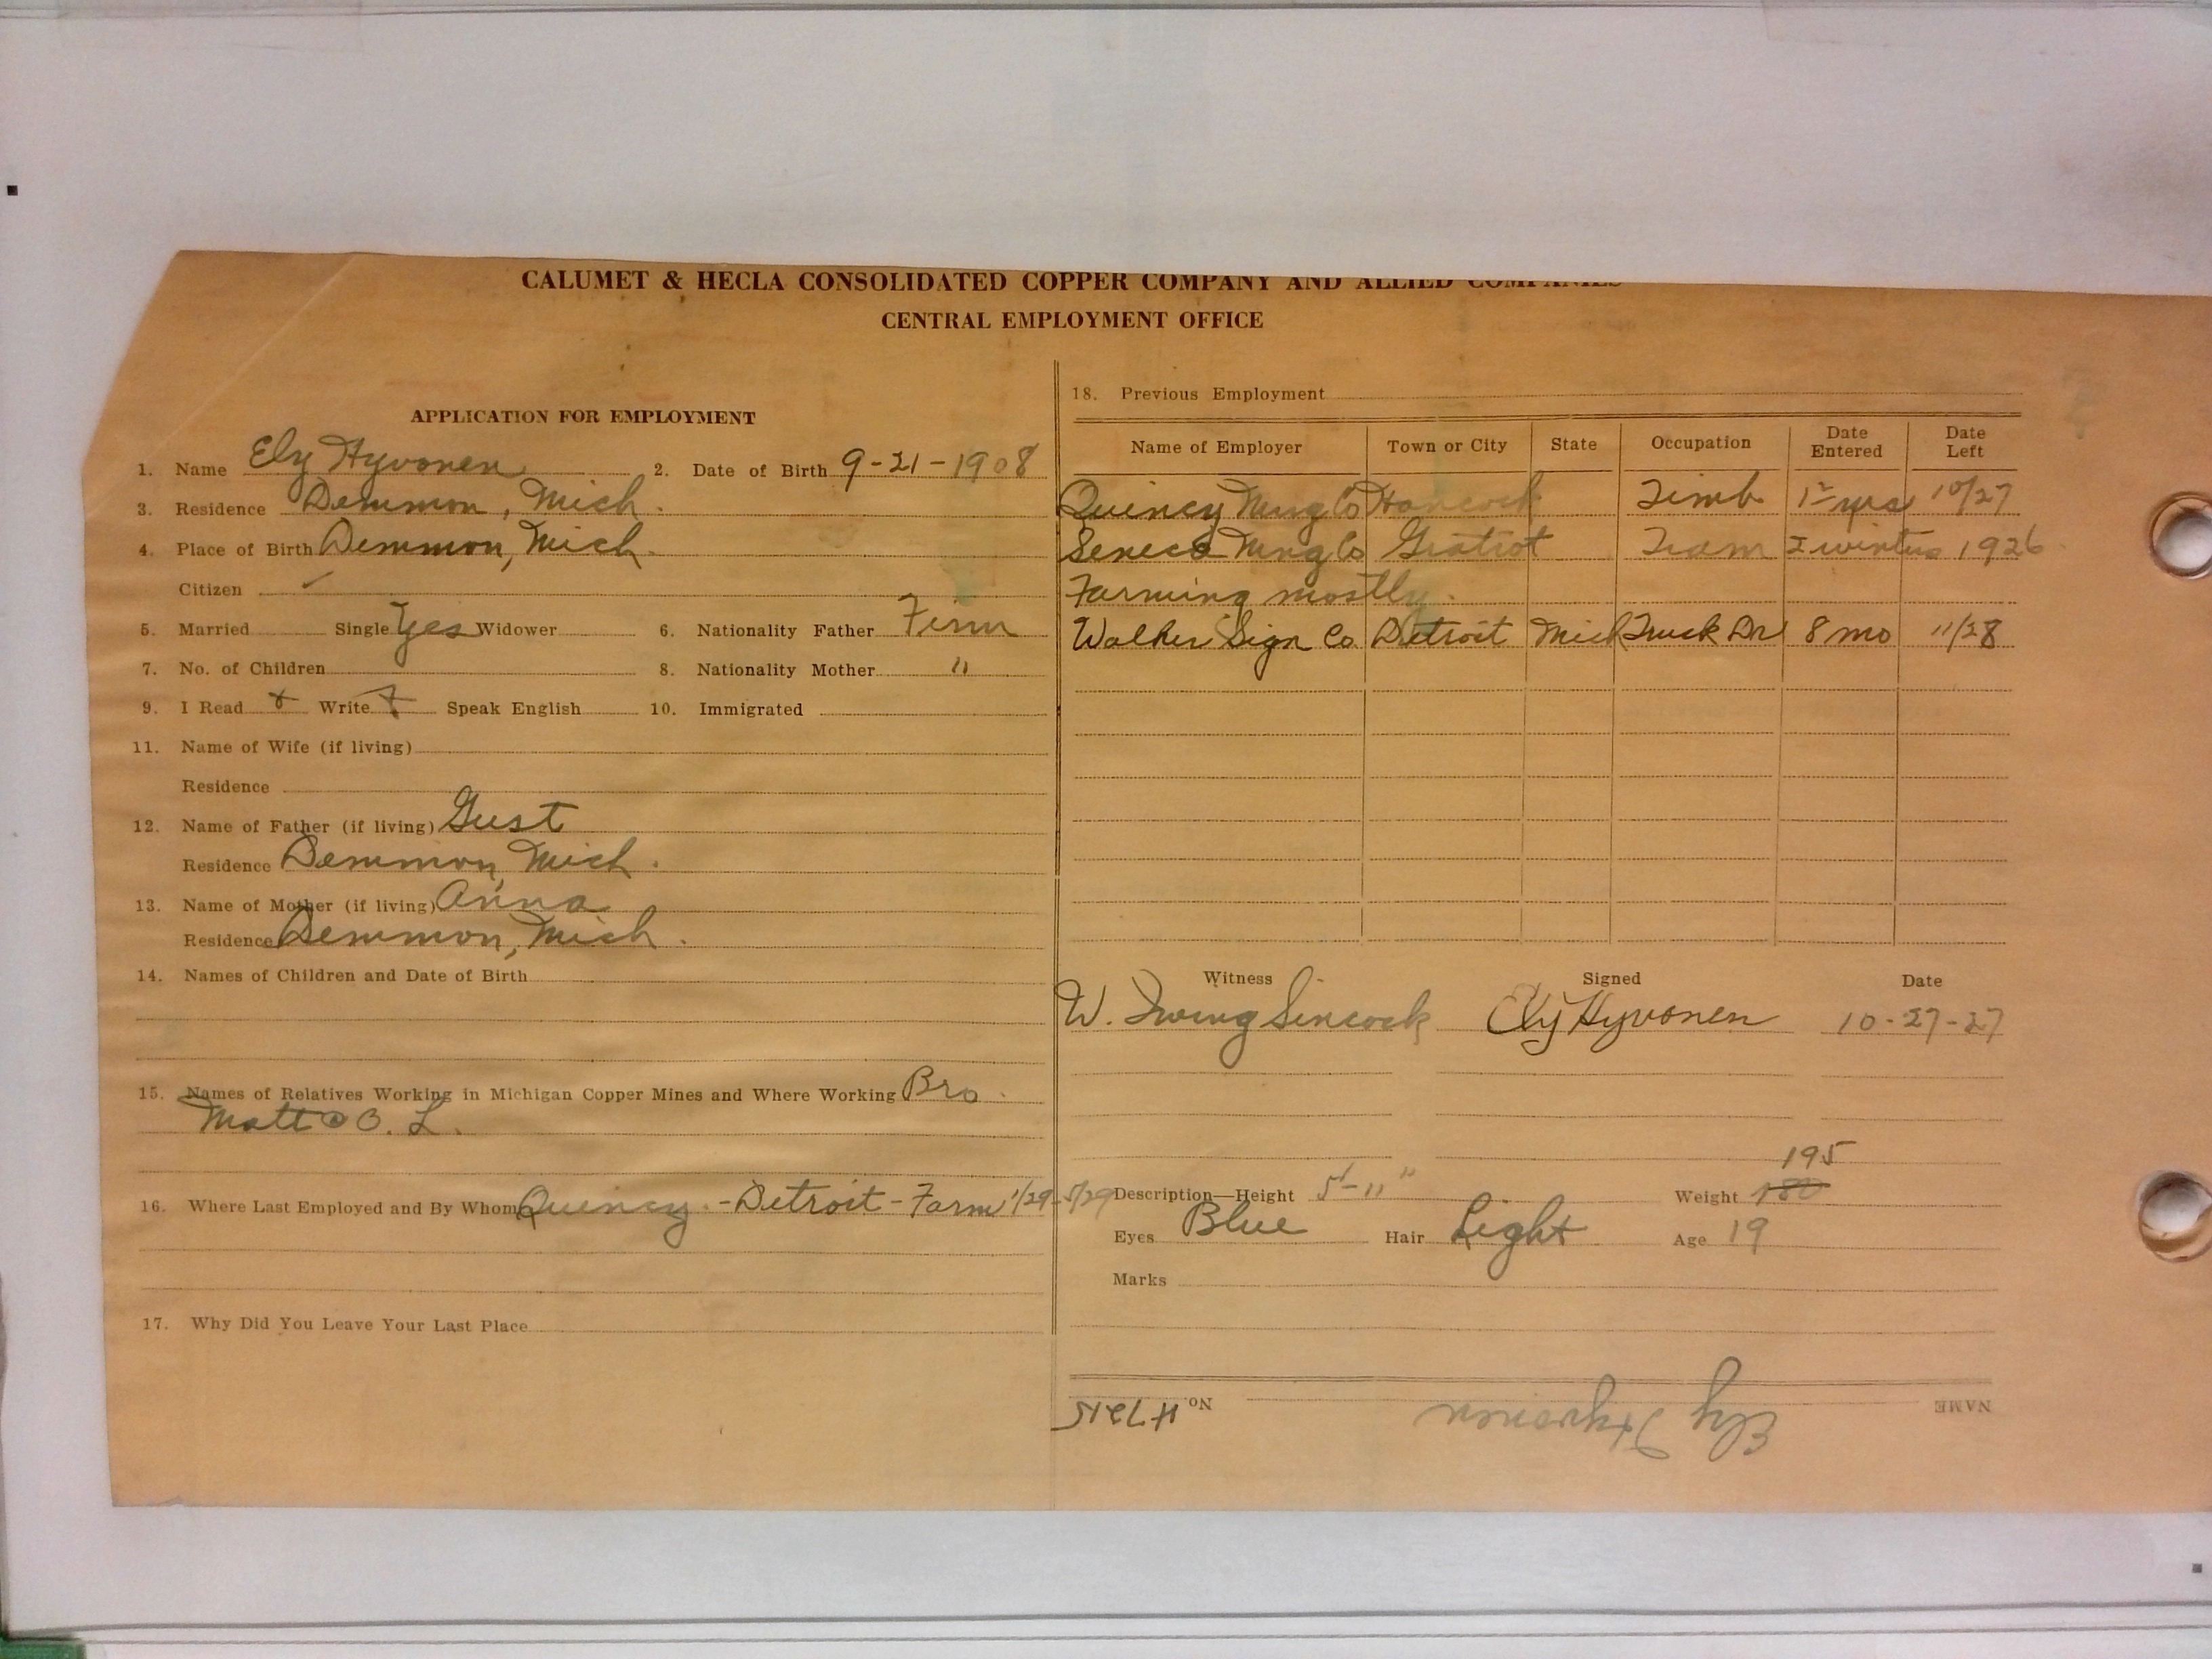 CALUMET & HECLA CONSOLIDATED COPPER COMPANY AND ALLIED COMPANIES
CENTRAL EMPLOYMENT OFFICE
APPLICATION FOR EMPLOYMENT
1. Name Ely Hyvonen 2. Date of Birth 9-21-1908
3. Residence Demmon, Mich.
4. Place of Birth Demmon, Mich.
Citizen ✓
5. Married Single Yes Widower 6. Nationality Father Finn
7. No. of Children 8. Nationality Mother "
9. I Read Write Speak English 10. Immigrated
11. Name of Wife (if living)
Residence
12. Name of Father (if living) Gust
Residence Demmon, Mich.
13. Name of Mother (if living) Anna
Residence Demmon, Mich.
14. Names of Children and Date of Birth
15. Names of Relatives Working in Michigan Copper Mines and Where Working Bro.
Matt @ O. L.
16. Where Last Employed and By Whom Quincy - Detroit - Farm 1/29 - 5/29
17. Why Did You Leave Your Last Place
18. Previous Employment
Name of Employer Town or City State Occupation Date Entered Date Left
Quincy Mng Co Hancock Timb. yrs 10/27
Seneca Mng Co Gratiot Tram 2 winters 1926
Farming mostly.
Walker Sign Co. Detroit Mich Truck Dr 8 mo 11/28
Witness Signed Date
W. Irving Sincock Ely Hyvonen 10-27-27
195
Description—Height 5'-11" Weight 180
Eyes Blue Hair Light Age 19
Marks
NAME Ely Hyvonen No. H7215